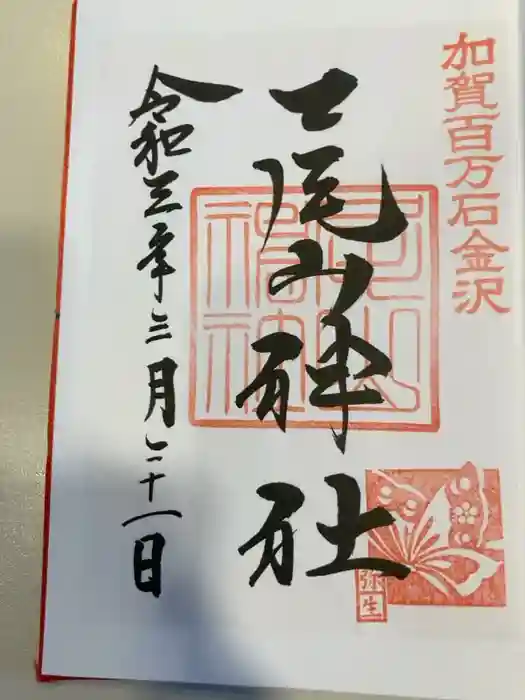 加賀百万石金沢
尾山神社
令和三年三月二十一日
弥生